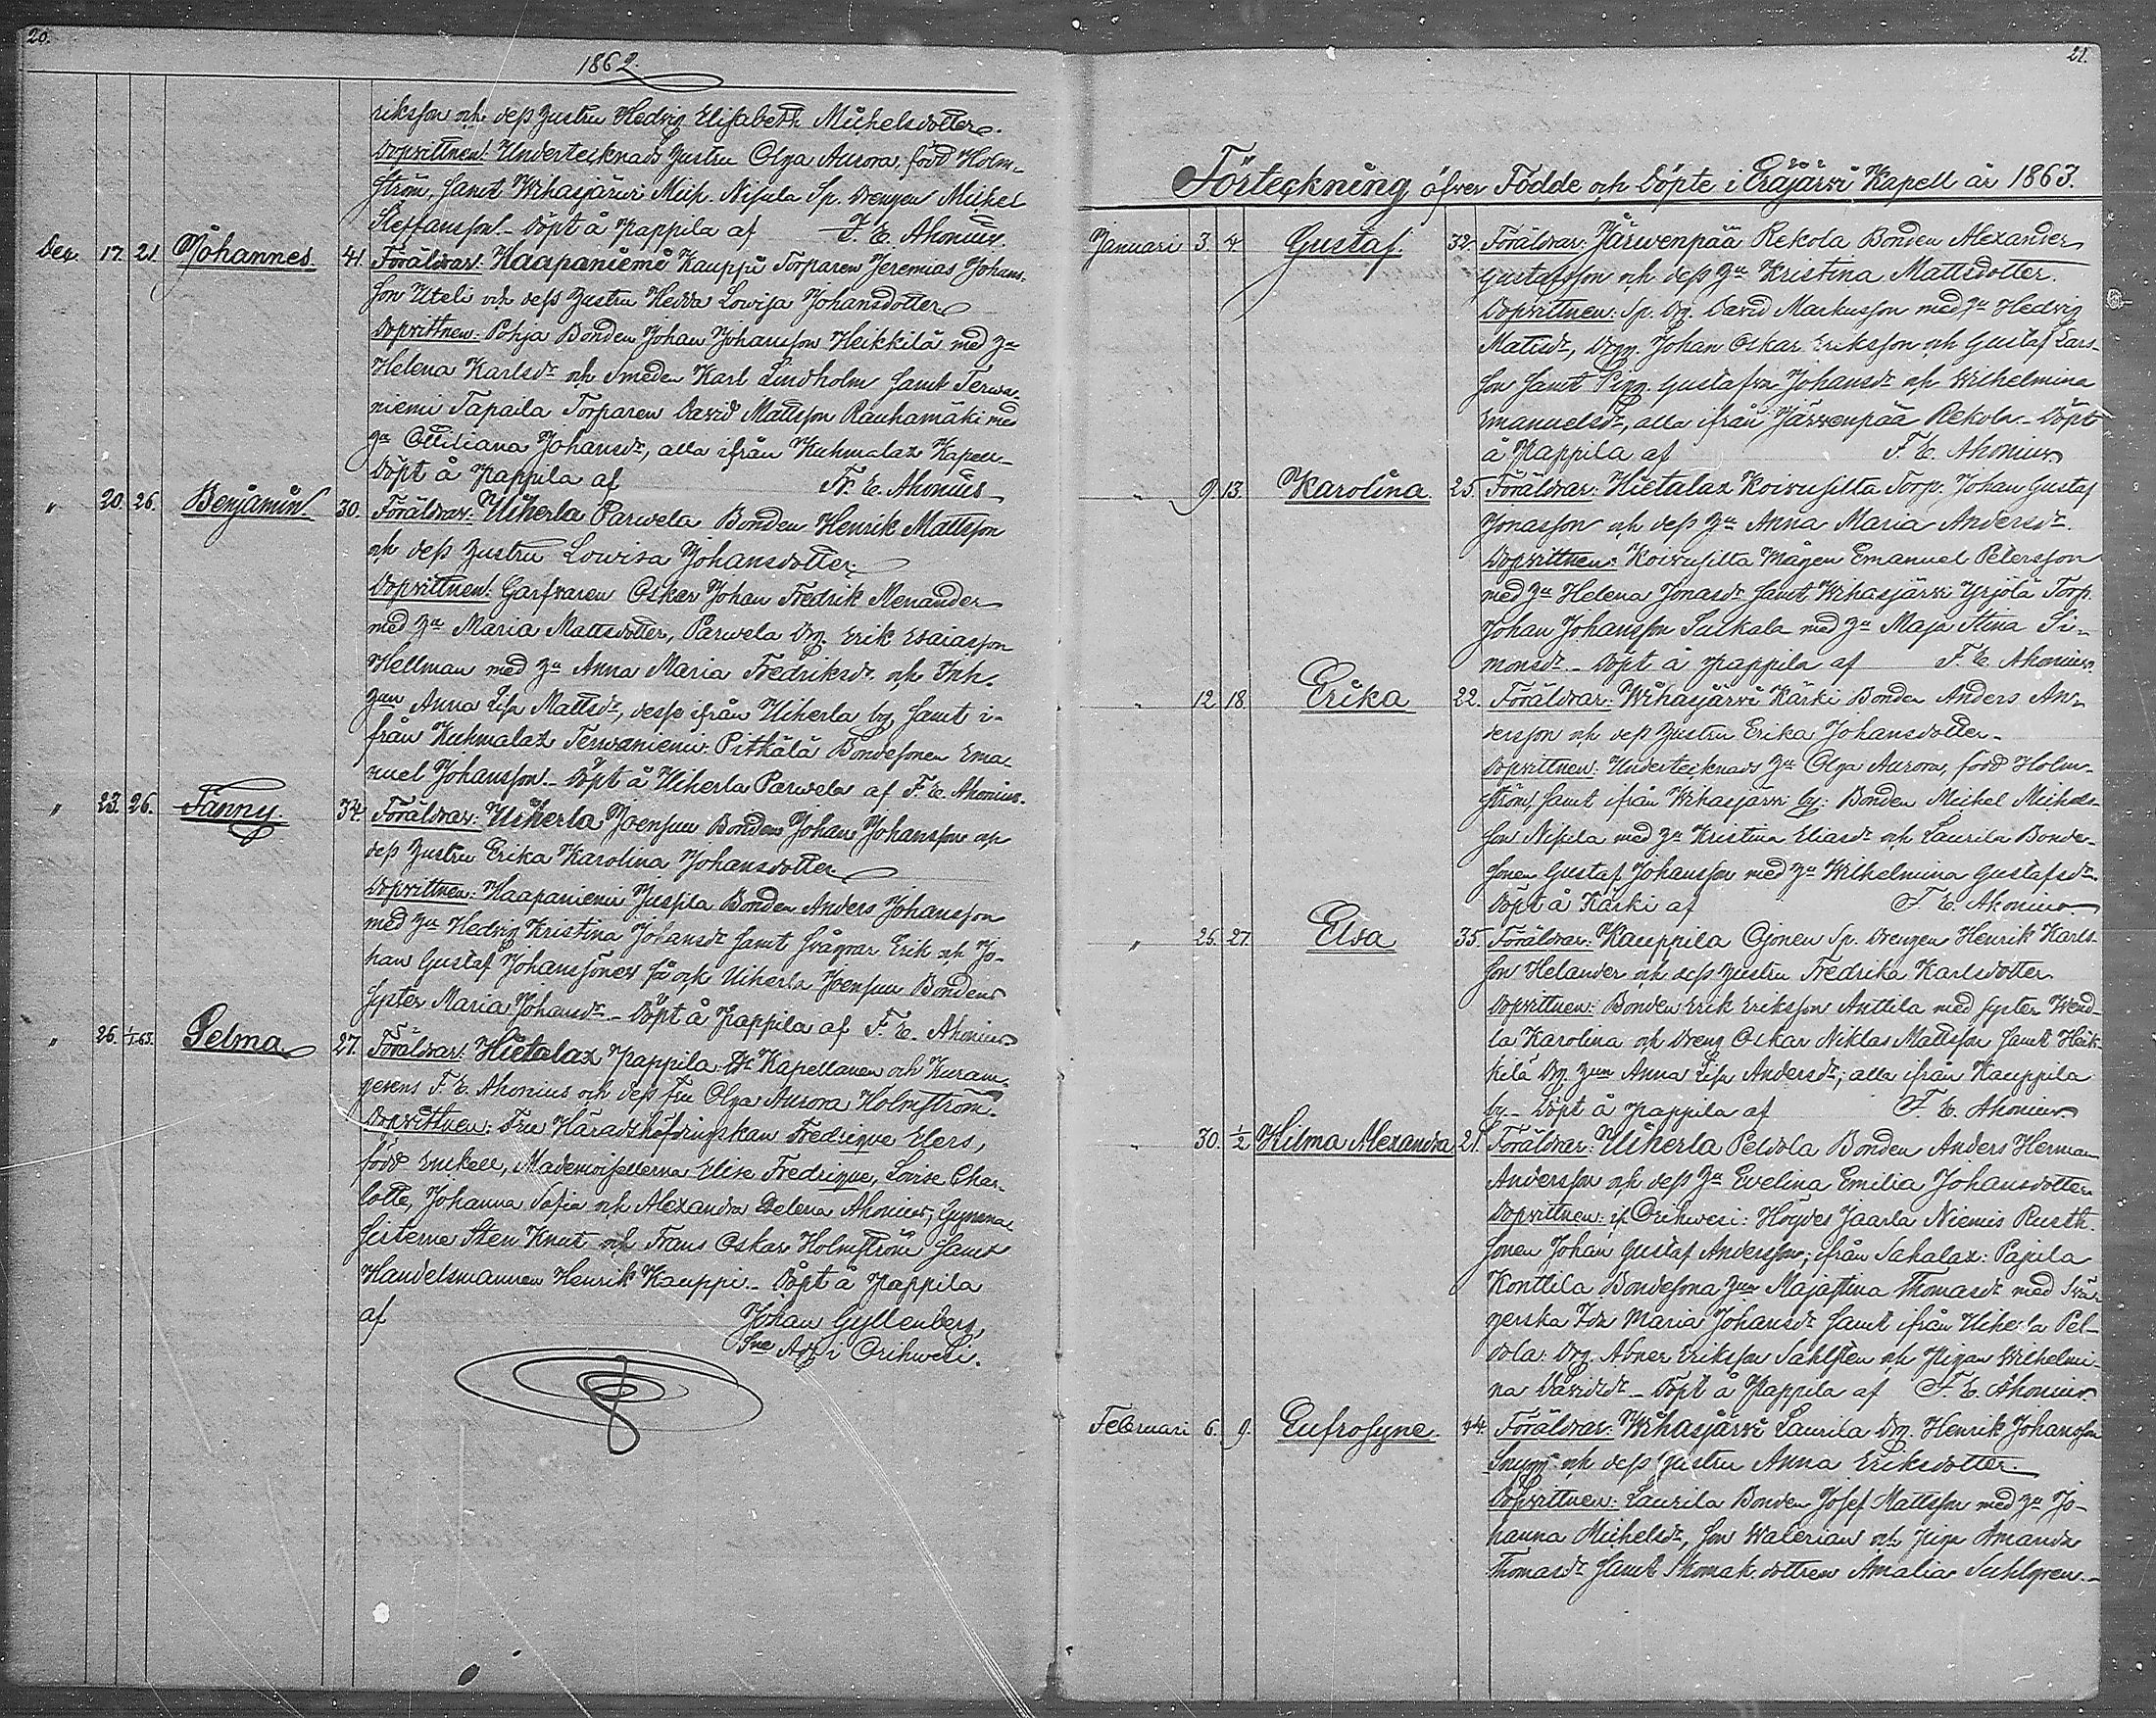 20.
1862.
riksson och dess hustru Hedvig Elisabeth Michelsdotter.
Dopvittnen: Undertecknads hustru Olga Aurora, född Holm-
ström, samt Wihasjärvi Nisula Sp. Drengen Michel
Steffansson. Döpt å Pappila af F. E. Ahonius.
Dec. 17. 21. Johannes. 41. Föräldrar: Haapaniemi Kauppi Torparen Jeremias Johans-
son Uteli och dess hustru Hedda Lovisa Johansdotter
Dopvittnen: Pohja Bonden Johan Johansson Heikkilä med hu
Helena Karlsdr och Smeden Karl Lindholm samt Terwa-
niemi Tapaila Torparen David Mattsson Rauhamäki med
hu Ottiliana Johansdr, alla ifrån Kuhmalax Kapell
Döpt å Pappila af Fr. E. Ahonius
" 20. 26. Benjamin 30. Föräldrar: Uiherla Parwela Bonden Henrik Mattsson
och dess hustru Lovisa Johansdotter
Dopvittnen: Garfvaren Oskar Johan Fredrik Menander
med hu Maria Mattsdotter, Parwela Drg. Erik Esaiasson
Hellman med hu Anna Maria Fredriksdr och Inh.
Anna Lisa Mattsdr, desse ifrån Uiherla by, samt i-
från Kuhmalax Terwaniemi: Pitkälä Bondesonen Ema-
nuel Johansson. Döpt å Uiherla Parwela af F. E. Ahonius.
" 23. 26. Fanny. 34. Föräldrar: Uiherla Joensuu Bonden Johan Johansson och
dess hustru Erika Karolina Johansdotter
Dopvittnen: Haapaniemi Jussila Bonden Anders Johansson
med hu Hedvig Kristina Johansdr samt Svågrar Erik och Jo-
han Gustaf Johanssöner och Uiherla Joensuu Bondens
syster Maria Johansdr. Döpt å Pappila af F. E. Ahonius
" 26. 1/1 63. Selma 27. Föräldrar: Hietalax Pappila: Kapellanen och
F. E. Ahonius och dess Fru Olga Aurora Holmström.
Dopvittnen: Fru Häradshöfdingskan Fredrique Elers,
född Enckell, Mademoisellerna Elise Fredrique, Lovise Char-
lotte, Johanna Sofia och Alexandra Helena Ahonius, Gymna-
sisterne Sten Knut och Frans Oskar Holmström samt
Handelsmannen Henrik Kauppi. Döpt å Pappila
af Johan Gyllenberg,
Sne Adj. i Orihwesi.
21.
Förteckning öfver Födde och Döpte i Eräjärwi Kapell år 1863.
Januari 3. 4. Gustaf. 32. Föräldrar: Järwenpää Rekola Bonden Alexander
Gustafsson och dess hu Kristina Mattsdotter.
Dopvittnen: Sp. Drg. David Markusson med hu Hedvig
Matsdr, Drgn. Johan Oskar Eriksson och Gustaf Lars-
son samt Pign. Gustafva Johansdr och Wilhelmina
Emanuelsdr, alla ifrån Järwenpää Rekola. Döpt
å Pappila af F. E. Ahonius
" 9. 13. Karolina. 25. Föräldrar: Hietalax Koivusilta Torp. Johan Gustaf
Jonasson och dess hu Anna Maria Andersdr.
Dopvittnen: Koivusilta Mågen Emanuel Petersson
med hu Helena Jonasdr samt Wihasjärwi Yrjölä Torp.
Johan Johansson Sulkala med hu Maja Stina Si-
monsdr. Döpt å Pappila af F. E. Ahonius
" 12. 18. Erika 22. Föräldrar: Wihasjärwi Kärki Bonden Anders An-
dersson och dess hustru Erika Johansdotter.
Dopvittnen: Undertecknads hu Olga Aurora, född Holm-
ström, samt ifrån Wihasjärwi by: Bonden Michel Michels-
son Nisula med hu Kristina Eliasdr och Laurila Bonde-
sonen Gustaf Johansson med hu Wilhelmina Gustafsdr.
Döpt å Kärki af F. E. Ahonius
" 25. 27. Elsa 35. Föräldrar: Kauppila Ojonen Sp. Drengen Henrik Karls-
son Helander och dess hustru Fredrika Karlsdotter
Dopvittnen: Bonden Erik Eriksson Anttila med syster Wend-
la Karolina och Dreng Oskar Niklas Mattsson samt Heik-
kilä Drg. Anna Lisa Andersdr; alla ifrån Kauppila
by. Döpt å Pappila af F. E. Ahonius
" 30. 1/2 Hilma Alexandra 21. Föräldrar: Uiherla Peldola Bonden Anders Herman
Andersson och dess hu Evelina Emilia Johansdotter
Dopvittnen: if. Orihwesi: Högdes Jaarla Niemis Rusth.
sonen Johan Gustaf Andersson; ifrån Sahalax: Pajula
Konttila Bondesona Majastina Thomasdr med Svä-
gerska Ida Maria Johansdr samt ifrån Uiherla Pel-
dola: Drg. Abner Eriksson Sahlsten och Pigan Wilhelmi-
na Davidsdr. Döpt å Pappila af F. E. Ahonius
Februari 6. 9. Eufrosyne. 44. Föräldrar: Wihasjärwi Laurila Drg. Henrik Johansson
Snygg och dess hustru Anna Eriksdotter.
Dopvittnen: Laurila Bonden Josef Mattsson med hu Jo-
hanna Michelsdr, son Walerian och Piga Amanda
Thomasdr samt Skomak. dottren Amalia Suhlgren.